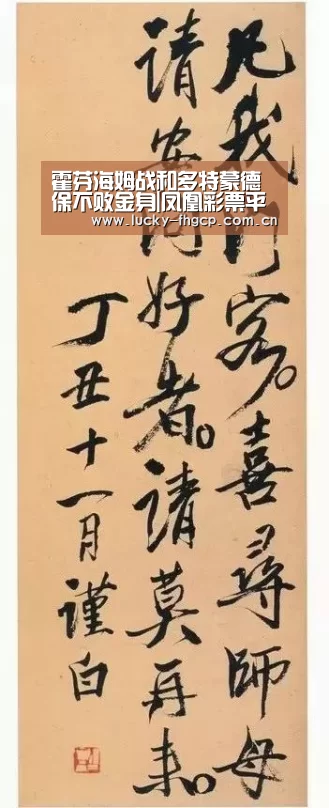 凡我門客。喜尋師母
請安問好者。請莫再來。
丁丑十一月謹白
霍芬海姆战和多特蒙德
保不败金身|凤凰彩票平
www.lucky-fhgcp.com.cn